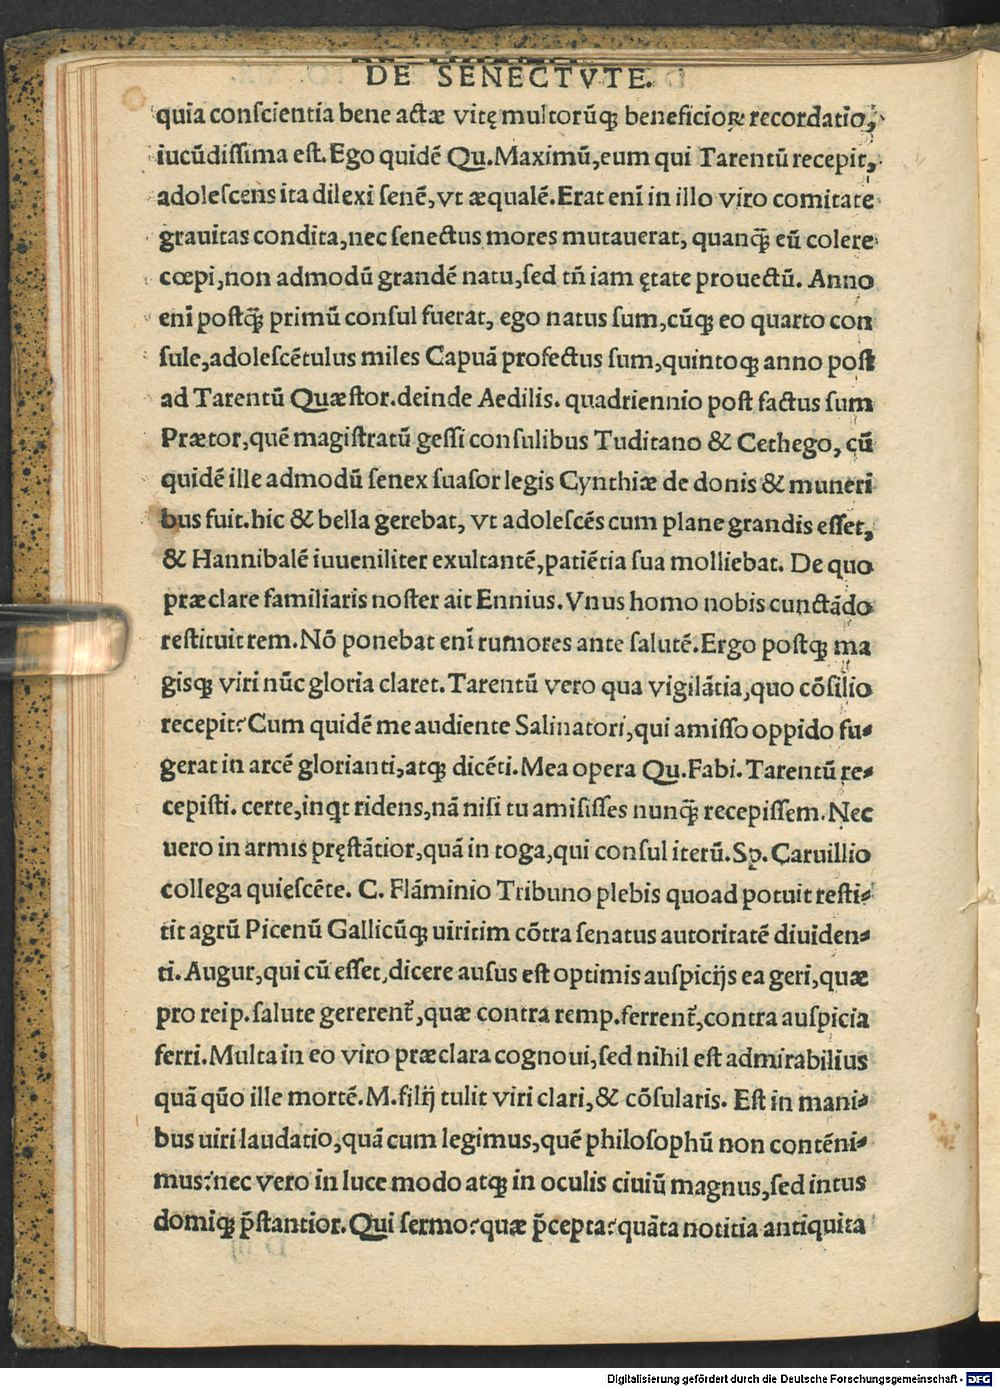 DE SENECTVTE.
quia conſcientia bene actæ vitę multorūq; beneficioꝝ recordatio,
iucūdiſſima eſt. Ego quidē Qu. Maximū, eum qui Tarentū recepit,
adoleſcens ita dilexi ſenē, vt æqualē. Erat enī in illo viro comitate
grauitas condita, nec ſenectus mores mutauerat, quanq̄ eū colere
cœpi, non admodū grandē natu, ſed tñ iam ętate prouectū. Anno
enī poſtq̄ primū conſul fuerat, ego natus ſum, cūq; eo quarto con
ſule, adoleſcētulus miles Capuā profectus ſum, quintoq; anno poſt
ad Tarentū Quæſtor. deinde Aedilis. quadriennio poſt factus ſum
Prætor, quē magiſtratū geſſi conſulibus Tuditano & Cethego, cū
quidē ille admodū ſenex ſuaſor legis Cynthiæ de donis & muneri
bus fuit. hic & bella gerebat, vt adoleſcēs cum plane grandis eſſet,
& Hannibalē iuueniliter exultantē, patiētia ſua molliebat. De quo
præclare familiaris noſter ait Ennius. Vnus homo nobis cunctādo
reſtituit rem. Nō ponebat enī rumores ante ſalutē. Ergo poſtq; ma
giſq; viri nūc gloria claret. Tarentū vero qua vigilātia, quo cōſilio
recepit? Cum quidē me audiente Salinatori, qui amiſſo oppido fu-
gerat in arcē glorianti, atq; dicēti. Mea opera Qu. Fabi. Tarentū re-
cepiſti. certe, inqt ridens, nā niſi tu amiſiſſes nunq̄ recepiſſem. Nec
uero in armis pręſtātior, quā in toga, qui conſul iterū. Sp. Caruillio
collega quieſcēte. C. Flāminio Tribuno plebis quoad potuit reſti-
tit agrū Picenū Gallicūq; uiritim cōtra ſenatus autoritatē diuiden-
ti. Augur, qui cū eſſet, dicere auſus eſt optimis auſpicijs ea geri, quæ
pro reip. ſalute gererent᷑, quæ contra remp. ferrent᷑, contra auſpicia
ferri. Multa in eo viro præclara cognoui, ſed nihil eſt admirabilius
quā qūo ille mortē. M. filij tulit viri clari, & cōſularis. Eſt in mani-
bus uiri laudatio, quā cum legimus, quē philoſophū non contēni-
mus? nec vero in luce modo atq; in oculis ciuiū magnus, ſed intus
domiq; p̄ſtantior. Qui ſermo? quæ p̄cepta? quāta notitia antiquita
Digitalisierung gefördert durch die Deutsche Forschungsgemeinschaft - DFG